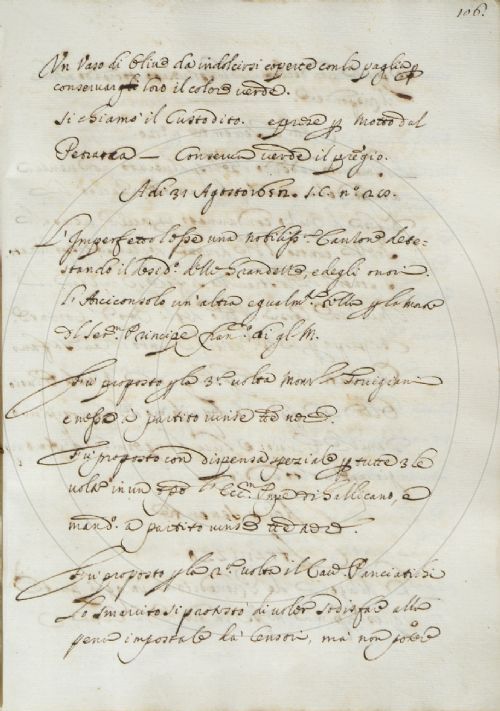 106.
Un Vaso di Olive da indolcirsi coperte con la paglia p
conservar loro il colore verde.
Si chiamò il Custodito. e prese p Motto dal
Petrarca — Conserva verde il pregio.
Adi 31 Agosto 1652. S. C. nº 20.
L'Imperfetto lesse una nobiliss. Canzone dete-
stando il desid.º delle Grandezze, e degli onori.
L'Arciconsolo un'altra egualm.e bella p la Morte
del Ser.mo Principe di gl. M.
Fù proposto p la 3.a volta Mons.
e messo à partito vinse tte nere.
Fù proposto con dispensa speziale p tutte 3 le
volte in un l'Ecc.mo Pnpe di Gallicano, e
mand.º a partito vinse
Fù proposto p la 2.a volta il Cav. Panciatichi
Lo Smarrito si protestò di voler sodisfare alle
pene impostale da Censori, ma non potere